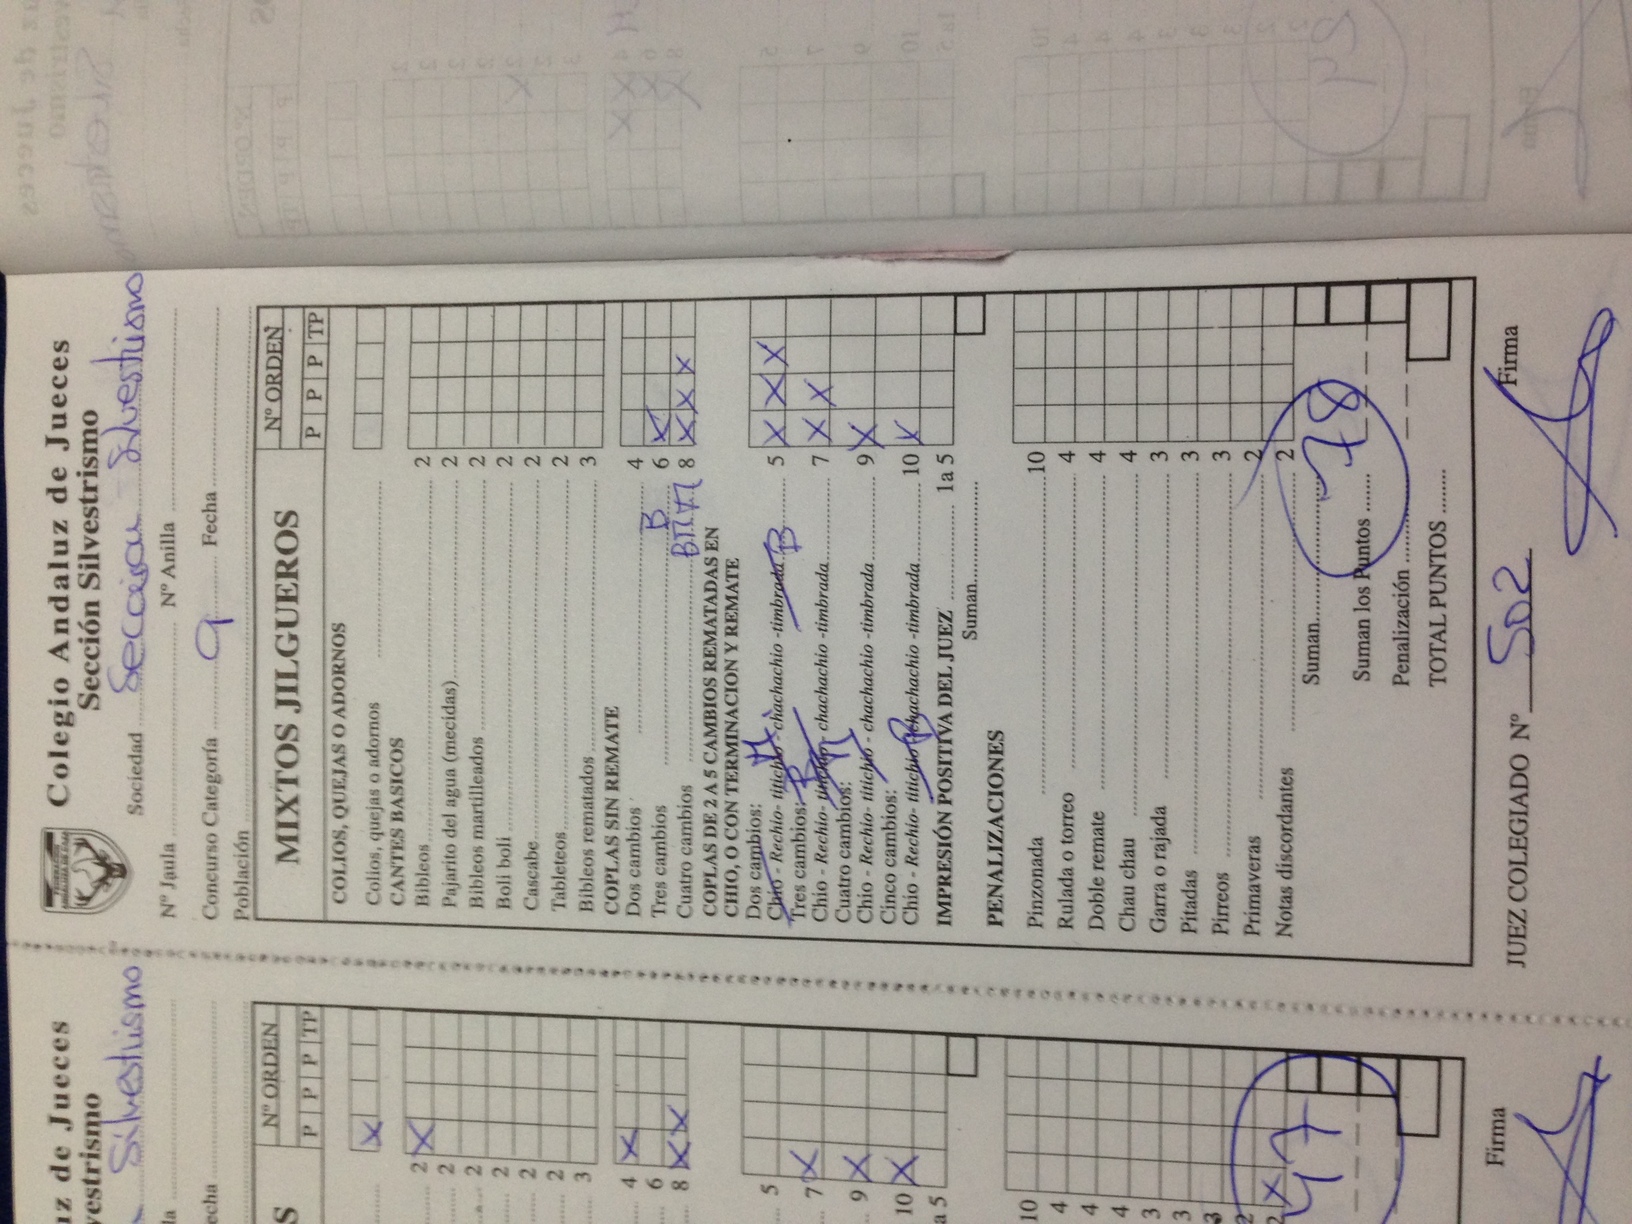 Colegio Andaluz de Jueces
Sección Silvestrismo
Sociedad Seccion Silvestrismo
Nº Jaula Nº Anilla
Concurso Categoría 9 Fecha
Población
MIXTOS JILGUEROS Nº ORDEN
P P P TP
COLIOS, QUEJAS O ADORNOS
Colios, quejas o adornos
CANTES BASICOS
Bibleos 2
Pajarito del agua (mecidas) 2
Bibleos martilleados 2
Boli boli 2
Cascabe 2
Tableteos 2
Bibleos rematados 3
COPLAS SIN REMATE
Dos cambios 4
Tres cambios B 6 X
Cuatro cambios 8 X X X
COPLAS DE 2 A 5 CAMBIOS REMATADAS EN
CHIO, O CON TERMINACION Y REMATE
Dos cambios:
Chio - Rechio- titichio - chachachio -timbrada B 5 X X X
Tres cambios:
Chio - Rechio- titichio - chachachio -timbrada 7 X X
Cuatro cambios:
Chio - Rechio- titichio - chachachio -timbrada 9 X
Cinco cambios:
Chio - Rechio- titichio B chachachio -timbrada 10 X
IMPRESIÓN POSITIVA DEL JUEZ 1a 5
Suman
PENALIZACIONES
Pinzonada 10
Rulada o torreo 4
Doble remate 4
Chau chau 4
Garra o rajada 3
Pitadas 3
Pirreos 3
Primaveras 2
Notas discordantes 2
Suman 78
Suman los Puntos
Penalización
TOTAL PUNTOS
JUEZ COLEGIADO Nº 502 Firma
de Jueces
Silvestrismo
Nº ORDEN
P P P TP
X
2 X
2
2
2
2
2
3
4 X
6
8 X X
5
7 X
9 X
10 X
a 5
10
4
4
4
3
3
3
2
2 X
47
Firma